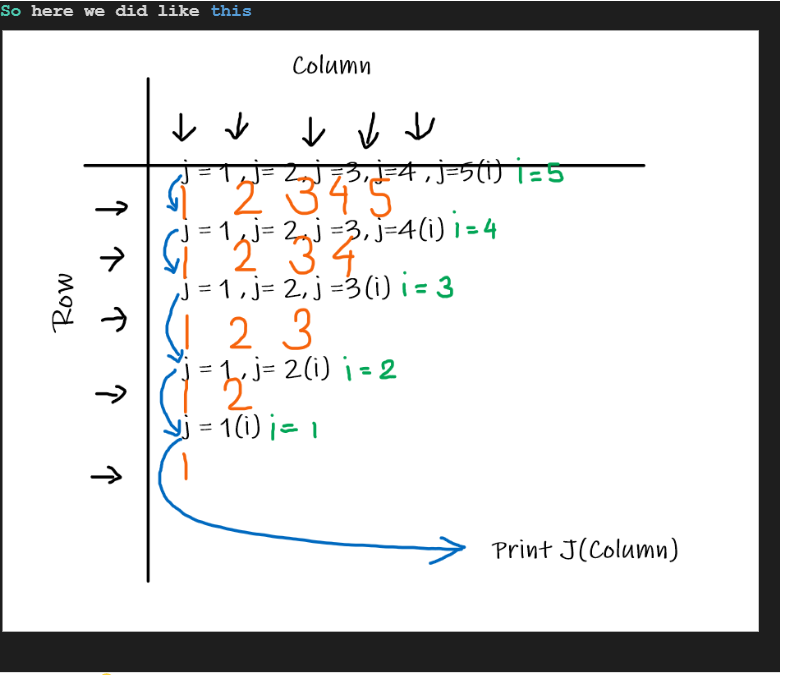 So here we did like this
Column
j = 1 ,j= 2,j =3,j=4 ,j=5(i) i=5
1 2 3 4 5
j = 1 ,j= 2,j =3,j=4(i) i=4
1 2 3 4
j = 1 ,j= 2,j =3(i) i=3
Row
1 2 3
j = 1,j= 2(i) i=2
1 2
j = 1(i) i= 1
1
Print J(Column)